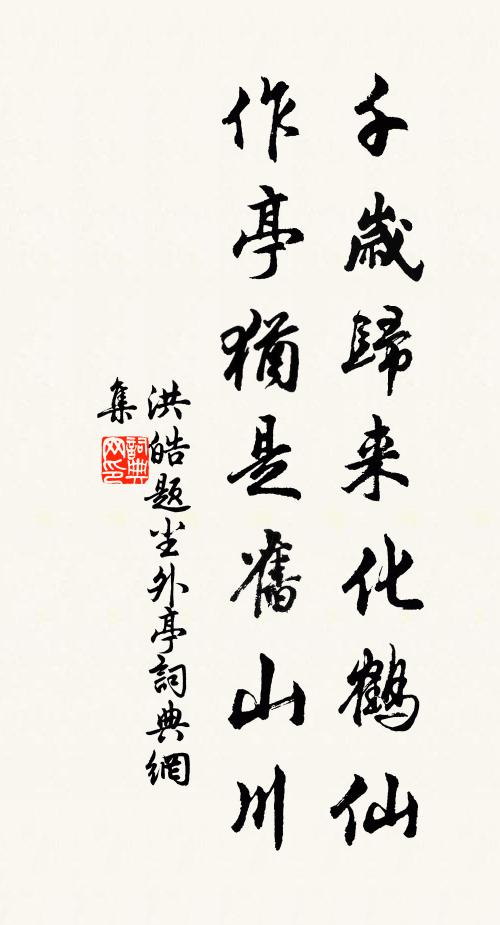 千歲歸来化鶴仙
作亭猶是舊山川
洪皓题尘外亭詞典網
集
詞典網印